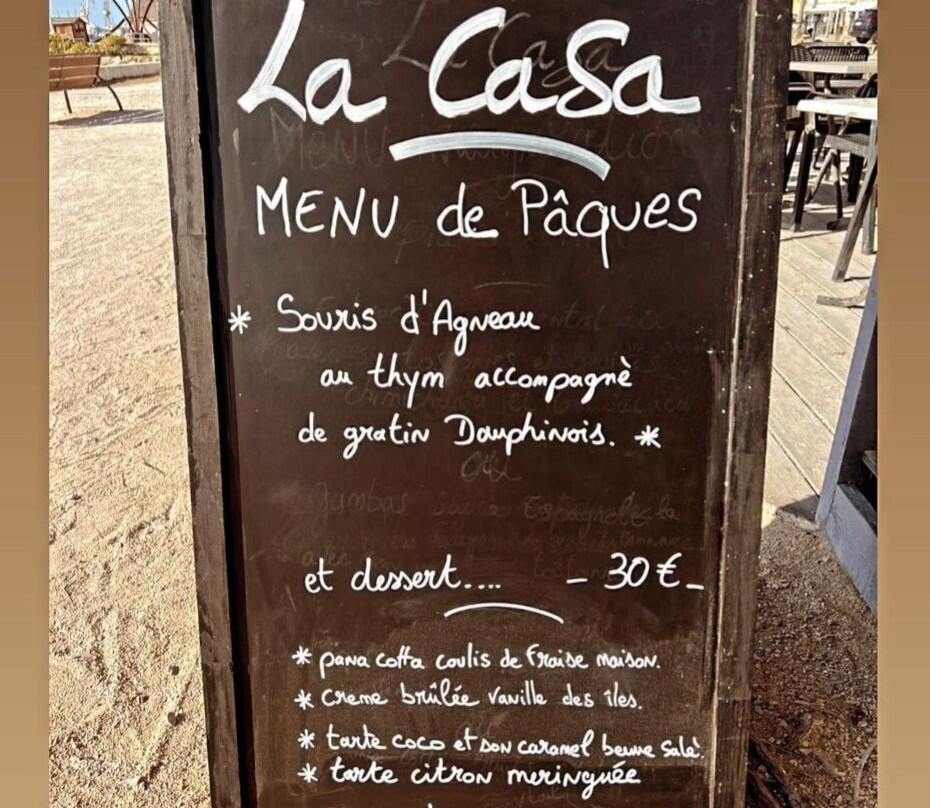 La Casa
MENU de Pâques
* Souris d'Agneau
au thym accompagnè
de gratin Dauphinois. *
et dessert.... - 30 € -
* pana cotta coulis de fraise maison.
* creme brûlée vanille des îles.
* tarte coco et son caramel beurre salé.
* tarte citron meringuée